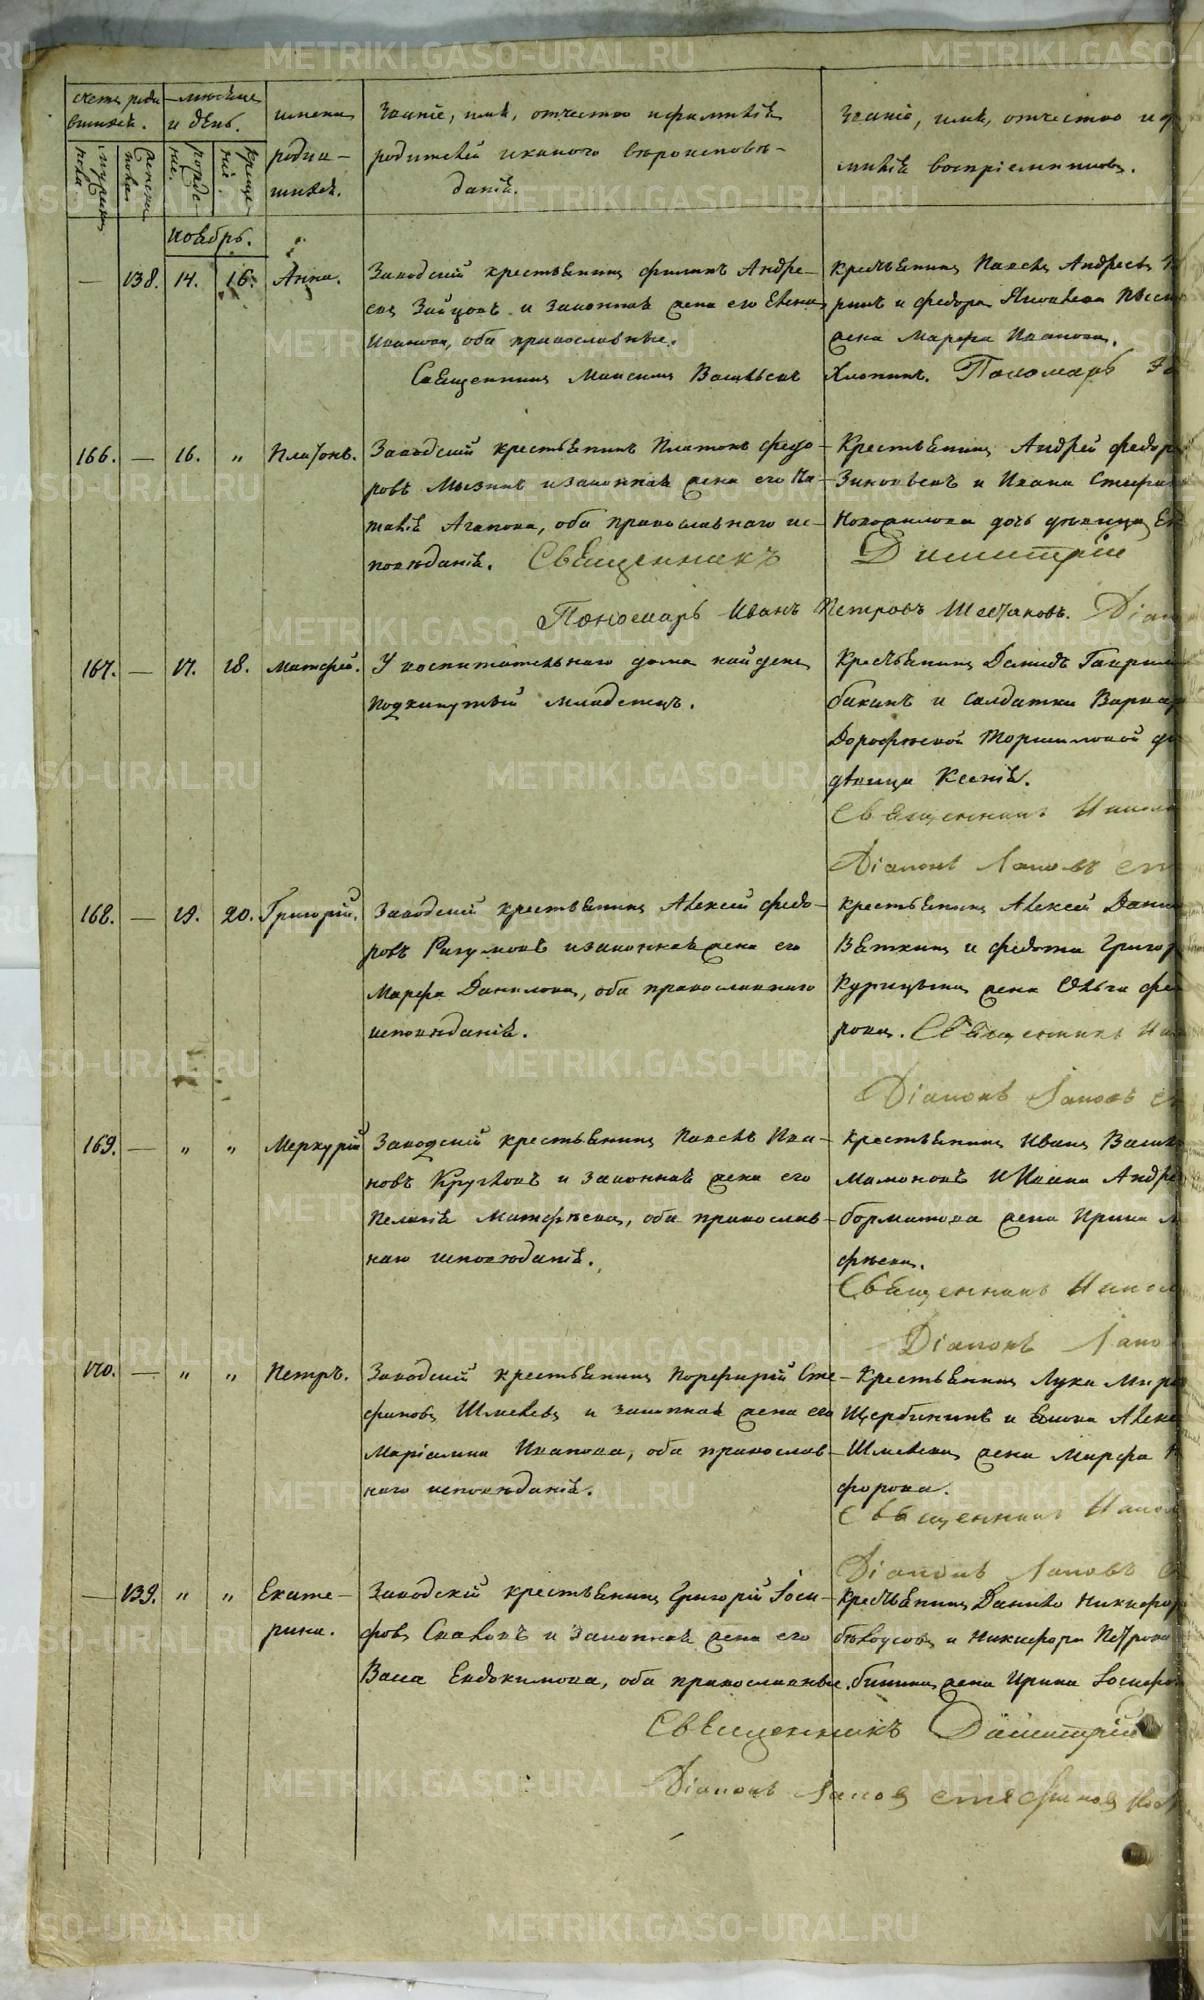 Счетъ роди-
вшихся.
Мѣсяцъ
и день.
мужеска
пола
женска
пола
рожде-
нія.
креще-
нія.
имена
родив-
шихся.
Званіе, имя, отчество и фамилія
родителей и какого вѣроисповѣ-
данія.
Званіе, имя, отчество и фа
милія воспріемниковъ.
Ноябрь.
— 138. 14. 16. Анна.
Заводскій крестьянинъ Филипъ Андре-
евъ Зайцовъ и законная жена его Елена
Иванова, оба православные.
Священникъ Максимъ Васильевъ Хлопинъ. Пономарь
Крестьянинъ Павелъ Андреевъ
и Федора Яковлева
жена Марфа Иванова.
166. — 16. „ Платонъ.
Заводскій крестьянинъ Платонъ Федо-
ровъ Мызник и законная жена его На-
талія Агапова, оба православнаго ис-
повѣданія. Священникъ Димитрій
Крестьянинъ Андрей Федор
Зиновьевъ и Ивана Стефа
дочь дѣвица
Пономарь Иванъ Петровъ Шестаковъ. Діак
167. — 17. 18. Матфей.
У воспитательнаго дома найденъ
подкинутый младенецъ.
Крестьянинъ Давидъ Гаврил
бакинъ и солдатки Варвар
Дорофѣевой Торшиловой до
дѣвица Ксенія.
Священникъ Никола
Діаконъ Іаковъ Сте
168. — 19. 20. Григорій.
Заводскій крестьянинъ Алексей Федо-
ровъ Разумовъ и законная жена его
Марфа Данилова, оба православнаго
исповѣданія.
Крестьянинъ Алексей Дани
Вяткинъ и Федота Григор
Курицына жена Ольга Фе
рова. Священникъ Ник
Діаконъ Іаковъ Ст
169. — „ „ Меркурій
Заводскій крестьянинъ Павелъ Ива-
новъ Кругловъ и законная жена его
Пелагія Матфѣева, оба православ-
наго исповѣданія.
Крестьянинъ Иванъ Василь
Мамоновъ и Ивана Андре
Борматова жена Ирина М
фѣева.
Священникъ Никол
Діаконъ Іако
170. — „ „ Петръ.
Заводскій крестьянинъ Порфирій Сте-
фановъ Шмелевъ и законная жена его
Маріамна Иванова, оба православ-
наго исповѣданія.
Крестьянинъ Лука Миро
Щербининъ и Алек
Шмелева жена Марфа
форова.
Священникъ Никол
Діаконъ Іаковъ С
— 139. „ „ Екате-
рина.
Заводскій крестьянинъ Григорій Іоси-
фовъ и законная жена его
Васса Евдокимова, оба православные.
Крестьянинъ Данило Никифор
Бѣлоусовъ и Никифора Петрова
бинина жена Ирина Іосифов
Священникъ Димитрій
Діаконъ Іаковъ Стефановъ
METRIKI.GASO-URAL.RU